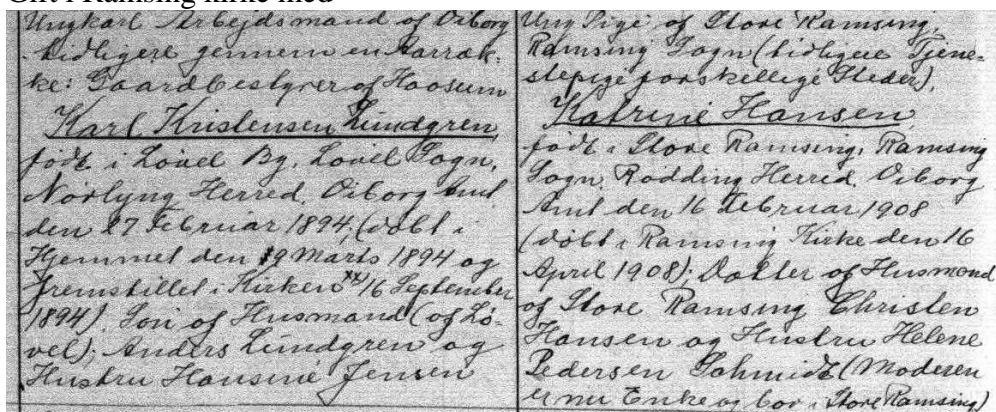 Gift i Ramsing kirke med
Ungkarl Arbejdsmand af Viborg
tidligere gennem en Aarræk-
ke: Gaardbestyrer af Haasum
Karl Kristensen Lundgren,
født i Løvel By, Løvel Sogn,
Nørlyng Herred, Viborg Amt
den 27 Februar 1894, (døbt i
Hjemmet den 19 Marts 1894 og
fremstillet i Kirken 16 September
1894). Søn af Husmand (af Lø-
vel); Anders Lundgren og
Hustru Hansine Jensen
Ung Pige af Store Ramsing,
Ramsing Sogn (tidligere Tjene-
stepige forskellige Steder),
Katrine Hansen,
født i Store Ramsing, Ramsing
Sogn, Rødding Herred, Viborg
Amt den 16 Februar 1908
(døbt i Ramsing Kirke den 16
April 1908); Datter af Husmand
af Store Ramsing Christen
Hansen og Hustru Helene
Pedersen Schmidt (Moderen
er nu Enke og bor i Store Ramsing)